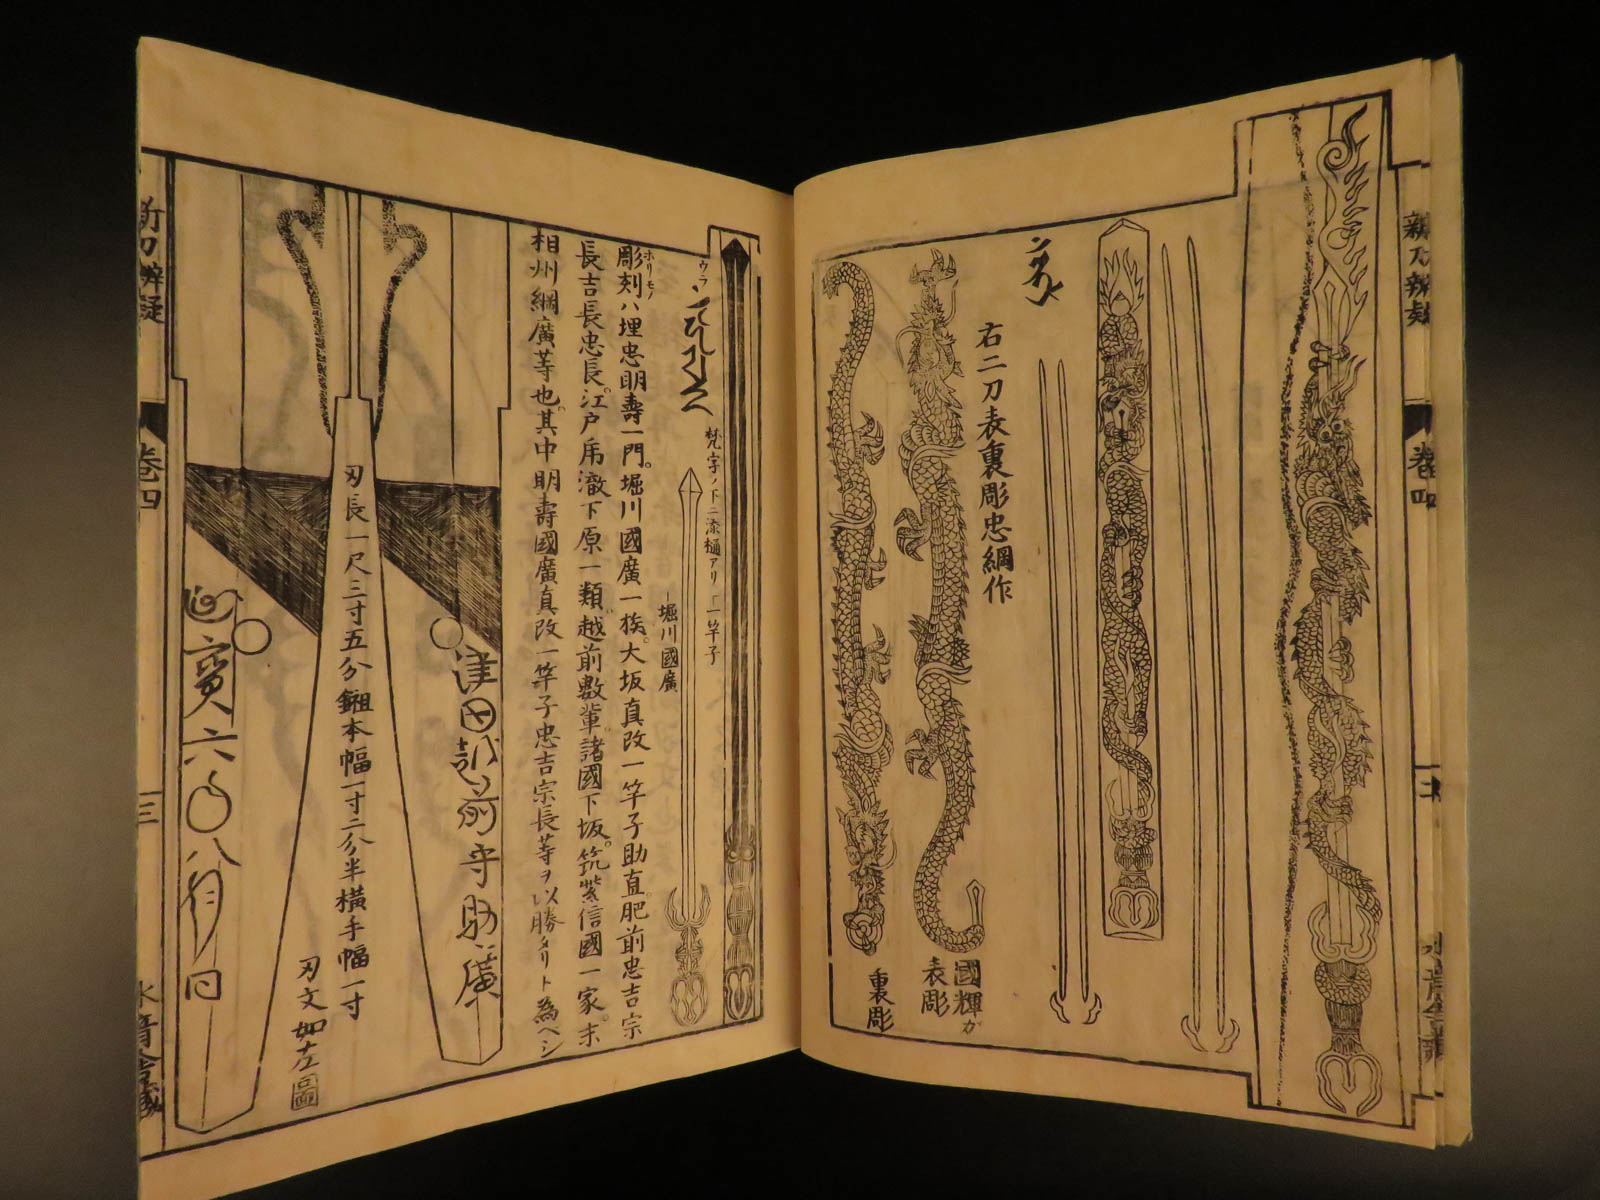 新刀辨疑
卷四
右二刀表裏彫忠綱作
國輝ガ
表彫
裏彫
ウラ
梵字ノ下ニ添樋アリ
一竿子
堀川國廣
ホリモノ
彫刻ハ埋忠明壽一門。堀川國廣一族。大坂真改一竿子助直。肥前忠吉宗
長吉長忠長。江戸乕徹下原一類。越前數輩。諸國下坂。筑紫信國一家。末
相州綱廣等也。其中明壽國廣真改一竿子忠吉宗長等ヲ以勝タリト為ヘシ
津田越前守助廣
刃長一尺三寸五分鎺本幅一寸二分半横手幅一寸
刃文如左圖
延寳六年八月日
新刀辨疑
卷四
三